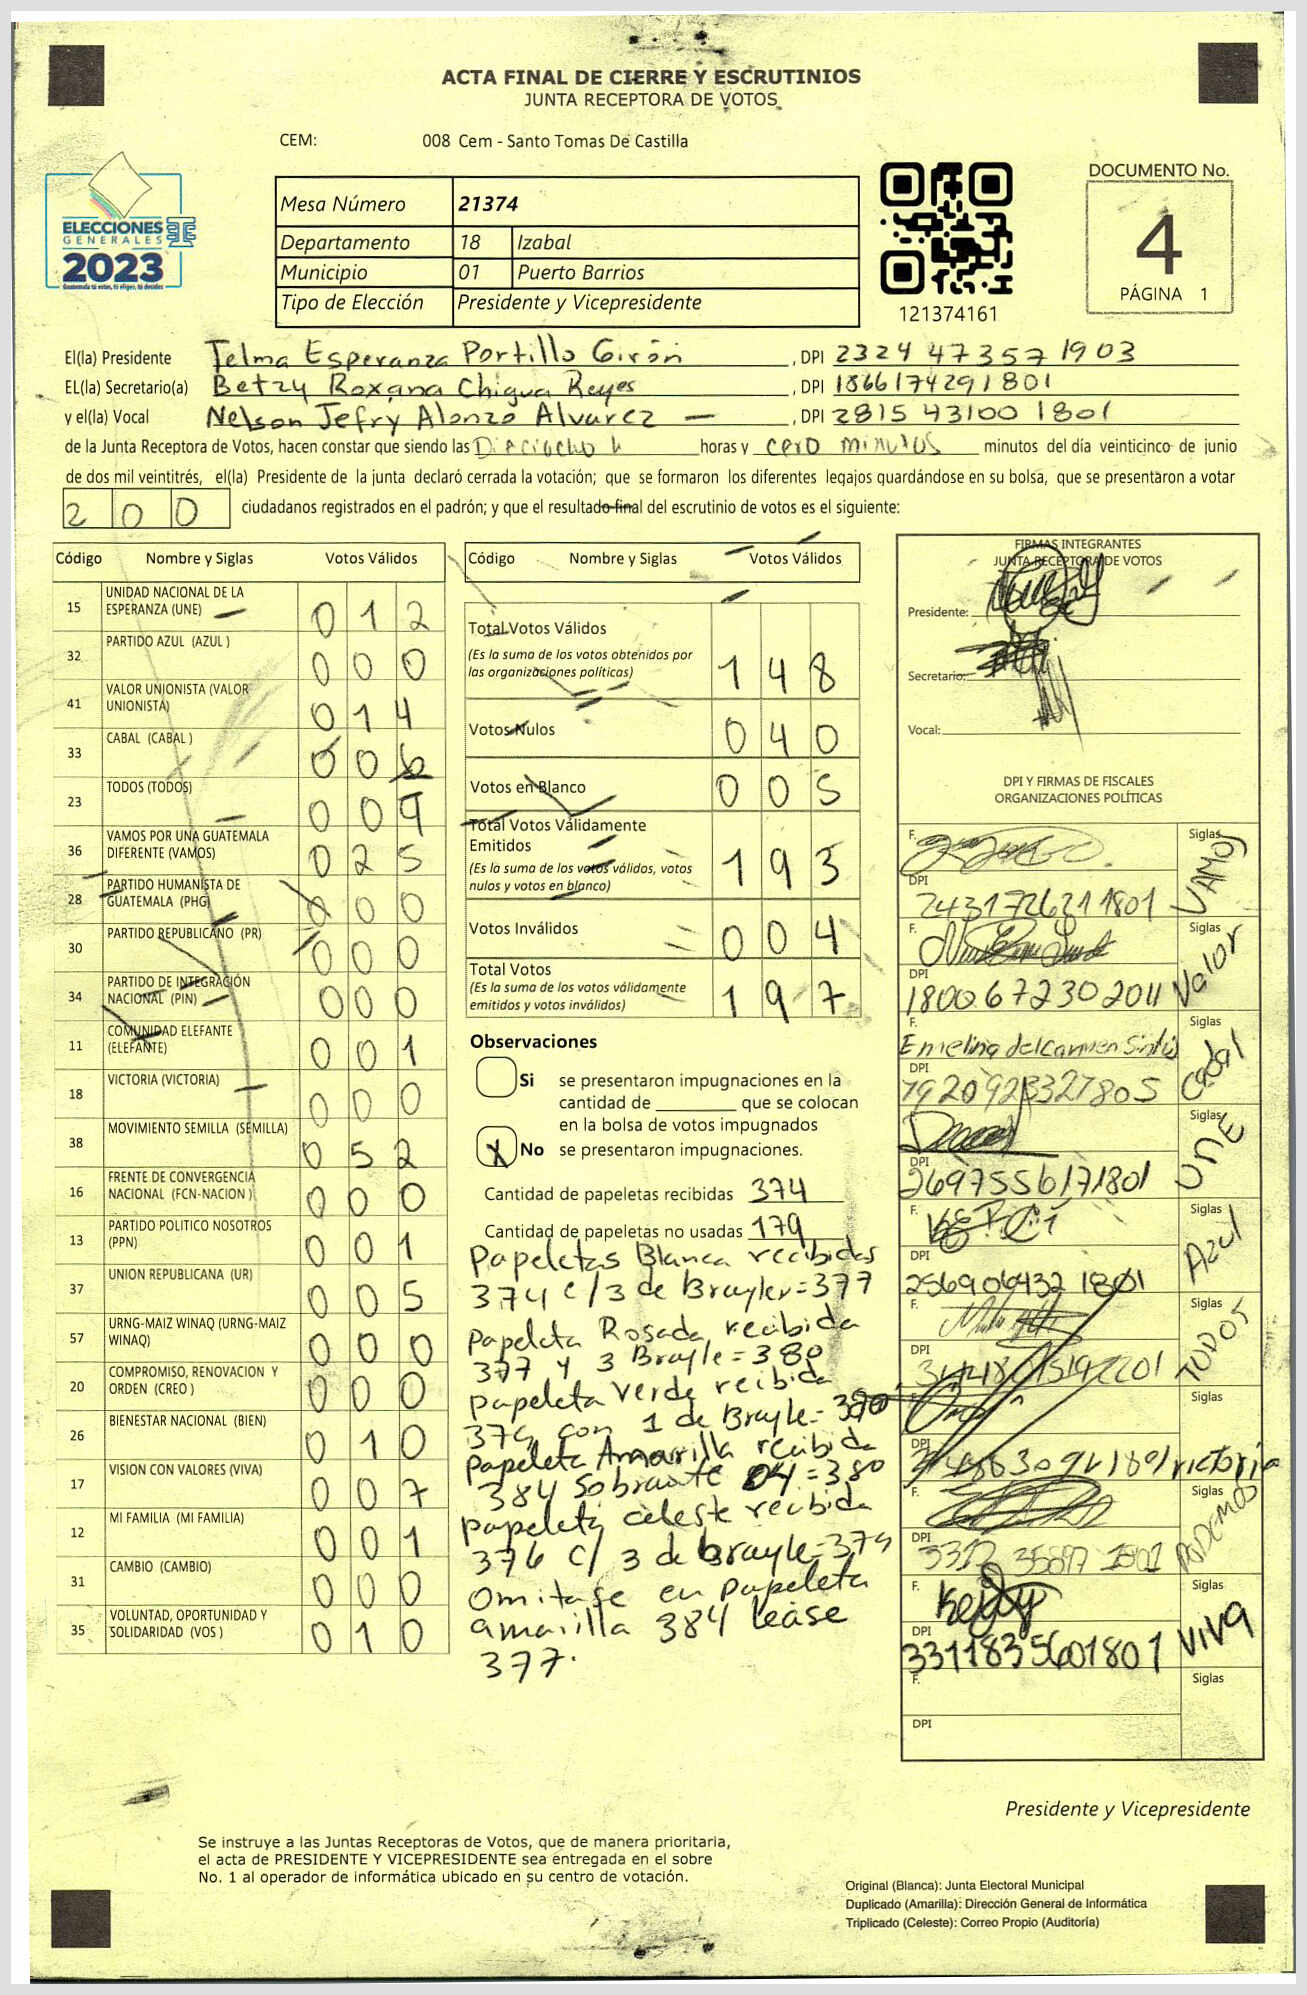 ACTA FINAL DE CIERRE Y ESCRUTINIOS
JUNTA RECEPTORA DE VOTOS
CEM: 008 Cem - Santo Tomas De Castilla
ELECCIONES
GENERALES
2023
Guatemala tú votas, tú eliges, tú decides
Mesa Número 21374
Departamento 18 Izabal
Municipio 01 Puerto Barrios
Tipo de Elección Presidente y Vicepresidente
121374161
DOCUMENTO No.
4
PÁGINA 1
El(la) Presidente Telma Esperanza Portillo Girón , DPI 2324 47357 1903
EL(la) Secretario(a) Betzy Roxana Chigua Reyes , DPI 1866174291801
y el(la) Vocal Nelson Jefry Alonzo Alvarez — , DPI 2815 43100 1801
de la Junta Receptora de Votos, hacen constar que siendo las Dieciocho h horas y cero minutos minutos del día veinticinco de junio
de dos mil veintitrés, el(la) Presidente de la junta declaró cerrada la votación; que se formaron los diferentes legajos guardándose en su bolsa, que se presentaron a votar
200 ciudadanos registrados en el padrón; y que el resultado final del escrutinio de votos es el siguiente:
Código Nombre y Siglas Votos Válidos
15 UNIDAD NACIONAL DE LA
ESPERANZA (UNE) 012
32 PARTIDO AZUL (AZUL ) 000
41 VALOR UNIONISTA (VALOR
UNIONISTA) 014
33 CABAL (CABAL ) 006
23 TODOS (TODOS) 009
36 VAMOS POR UNA GUATEMALA
DIFERENTE (VAMOS) 025
28 PARTIDO HUMANISTA DE
GUATEMALA (PHG) 000
30 PARTIDO REPUBLICANO (PR) 000
34 PARTIDO DE INTEGRACIÓN
NACIONAL (PIN) 000
11 COMUNIDAD ELEFANTE
(ELEFANTE) 001
18 VICTORIA (VICTORIA) 000
38 MOVIMIENTO SEMILLA (SEMILLA) 052
16 FRENTE DE CONVERGENCIA
NACIONAL (FCN-NACION ) 000
13 PARTIDO POLITICO NOSOTROS
(PPN) 001
37 UNION REPUBLICANA (UR) 005
57 URNG-MAIZ WINAQ (URNG-MAIZ
WINAQ) 000
20 COMPROMISO, RENOVACION Y
ORDEN (CREO ) 000
26 BIENESTAR NACIONAL (BIEN) 010
17 VISION CON VALORES (VIVA) 007
12 MI FAMILIA (MI FAMILIA) 001
31 CAMBIO (CAMBIO) 000
35 VOLUNTAD, OPORTUNIDAD Y
SOLIDARIDAD (VOS ) 010
Código Nombre y Siglas Votos Válidos
Total Votos Válidos
(Es la suma de los votos obtenidos por
las organizaciones políticas) 148
Votos Nulos 040
Votos en Blanco 005
Total Votos Válidamente
Emitidos
(Es la suma de los votos válidos, votos
nulos y votos en blanco) 193
Votos Inválidos 004
Total Votos
(Es la suma de los votos válidamente
emitidos y votos inválidos) 197
Observaciones
Si se presentaron impugnaciones en la
cantidad de ________ que se colocan
en la bolsa de votos impugnados
X No se presentaron impugnaciones.
Cantidad de papeletas recibidas 374
Cantidad de papeletas no usadas 179
Papeletas Blanca recibidas
374 c/3 de Brayler=377
Papeleta Rosada recibida
377 y 3 Brayle=380
Papeleta verde recibida
379 con 1 de Brayle=380
Papeleta Amarilla recibida
384 Sobrante 04=380
Papeleta celeste recibida
376 c/ 3 de brayle=379
Omitase en papeleta
amarilla 384 lease
377.
FIRMAS INTEGRANTES
JUNTA RECEPTORA DE VOTOS
Presidente:
Secretario:
Vocal:
DPI Y FIRMAS DE FISCALES
ORGANIZACIONES POLÍTICAS
F. Siglas VAMOS
DPI 2431726211801
F. Siglas Valor
DPI 1800672302011
F. Emelina del Carmen Siglas Cabal
DPI
F. Siglas UNE
DPI 2697556171801
F. Siglas Azul
DPI 256906432 1801
F. Siglas TODOS
DPI
F. Siglas Victoria
DPI
F. Siglas PODEMOS
DPI 3312 35897 1801
F. Keydy Siglas VIVA
DPI 3311835601801
F. Siglas
DPI
Presidente y Vicepresidente
Se instruye a las Juntas Receptoras de Votos, que de manera prioritaria,
el acta de PRESIDENTE Y VICEPRESIDENTE sea entregada en el sobre
No. 1 al operador de informática ubicado en su centro de votación.
Original (Blanca): Junta Electoral Municipal
Duplicado (Amarilla): Dirección General de Informática
Triplicado (Celeste): Correo Propio (Auditoría)